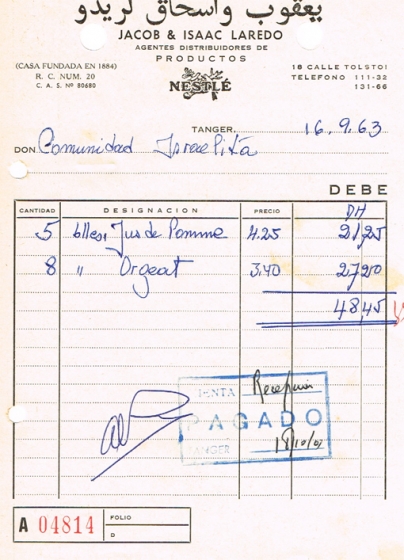 يعقوب واسحاق لريدو
JACOB & ISAAC LAREDO
AGENTES DISTRIBUIDORES DE
PRODUCTOS
NESTLÉ
(CASA FUNDADA EN 1884)
R. C. NUM. 20
C. A. S. Nº 80680
18 CALLE TOLSTOI
TELEFONO 111-32
131-66
TANGER, 16.9.63
DON Comunidad Israelita
DEBE
CANTIDAD DESIGNACION PRECIO DH
5 blles. Jus de Pomme 4.25 21,25
8 " Orgeat 3.40 27,20
48,45
PAGADO
TANGER
A 04814 FOLIO
D